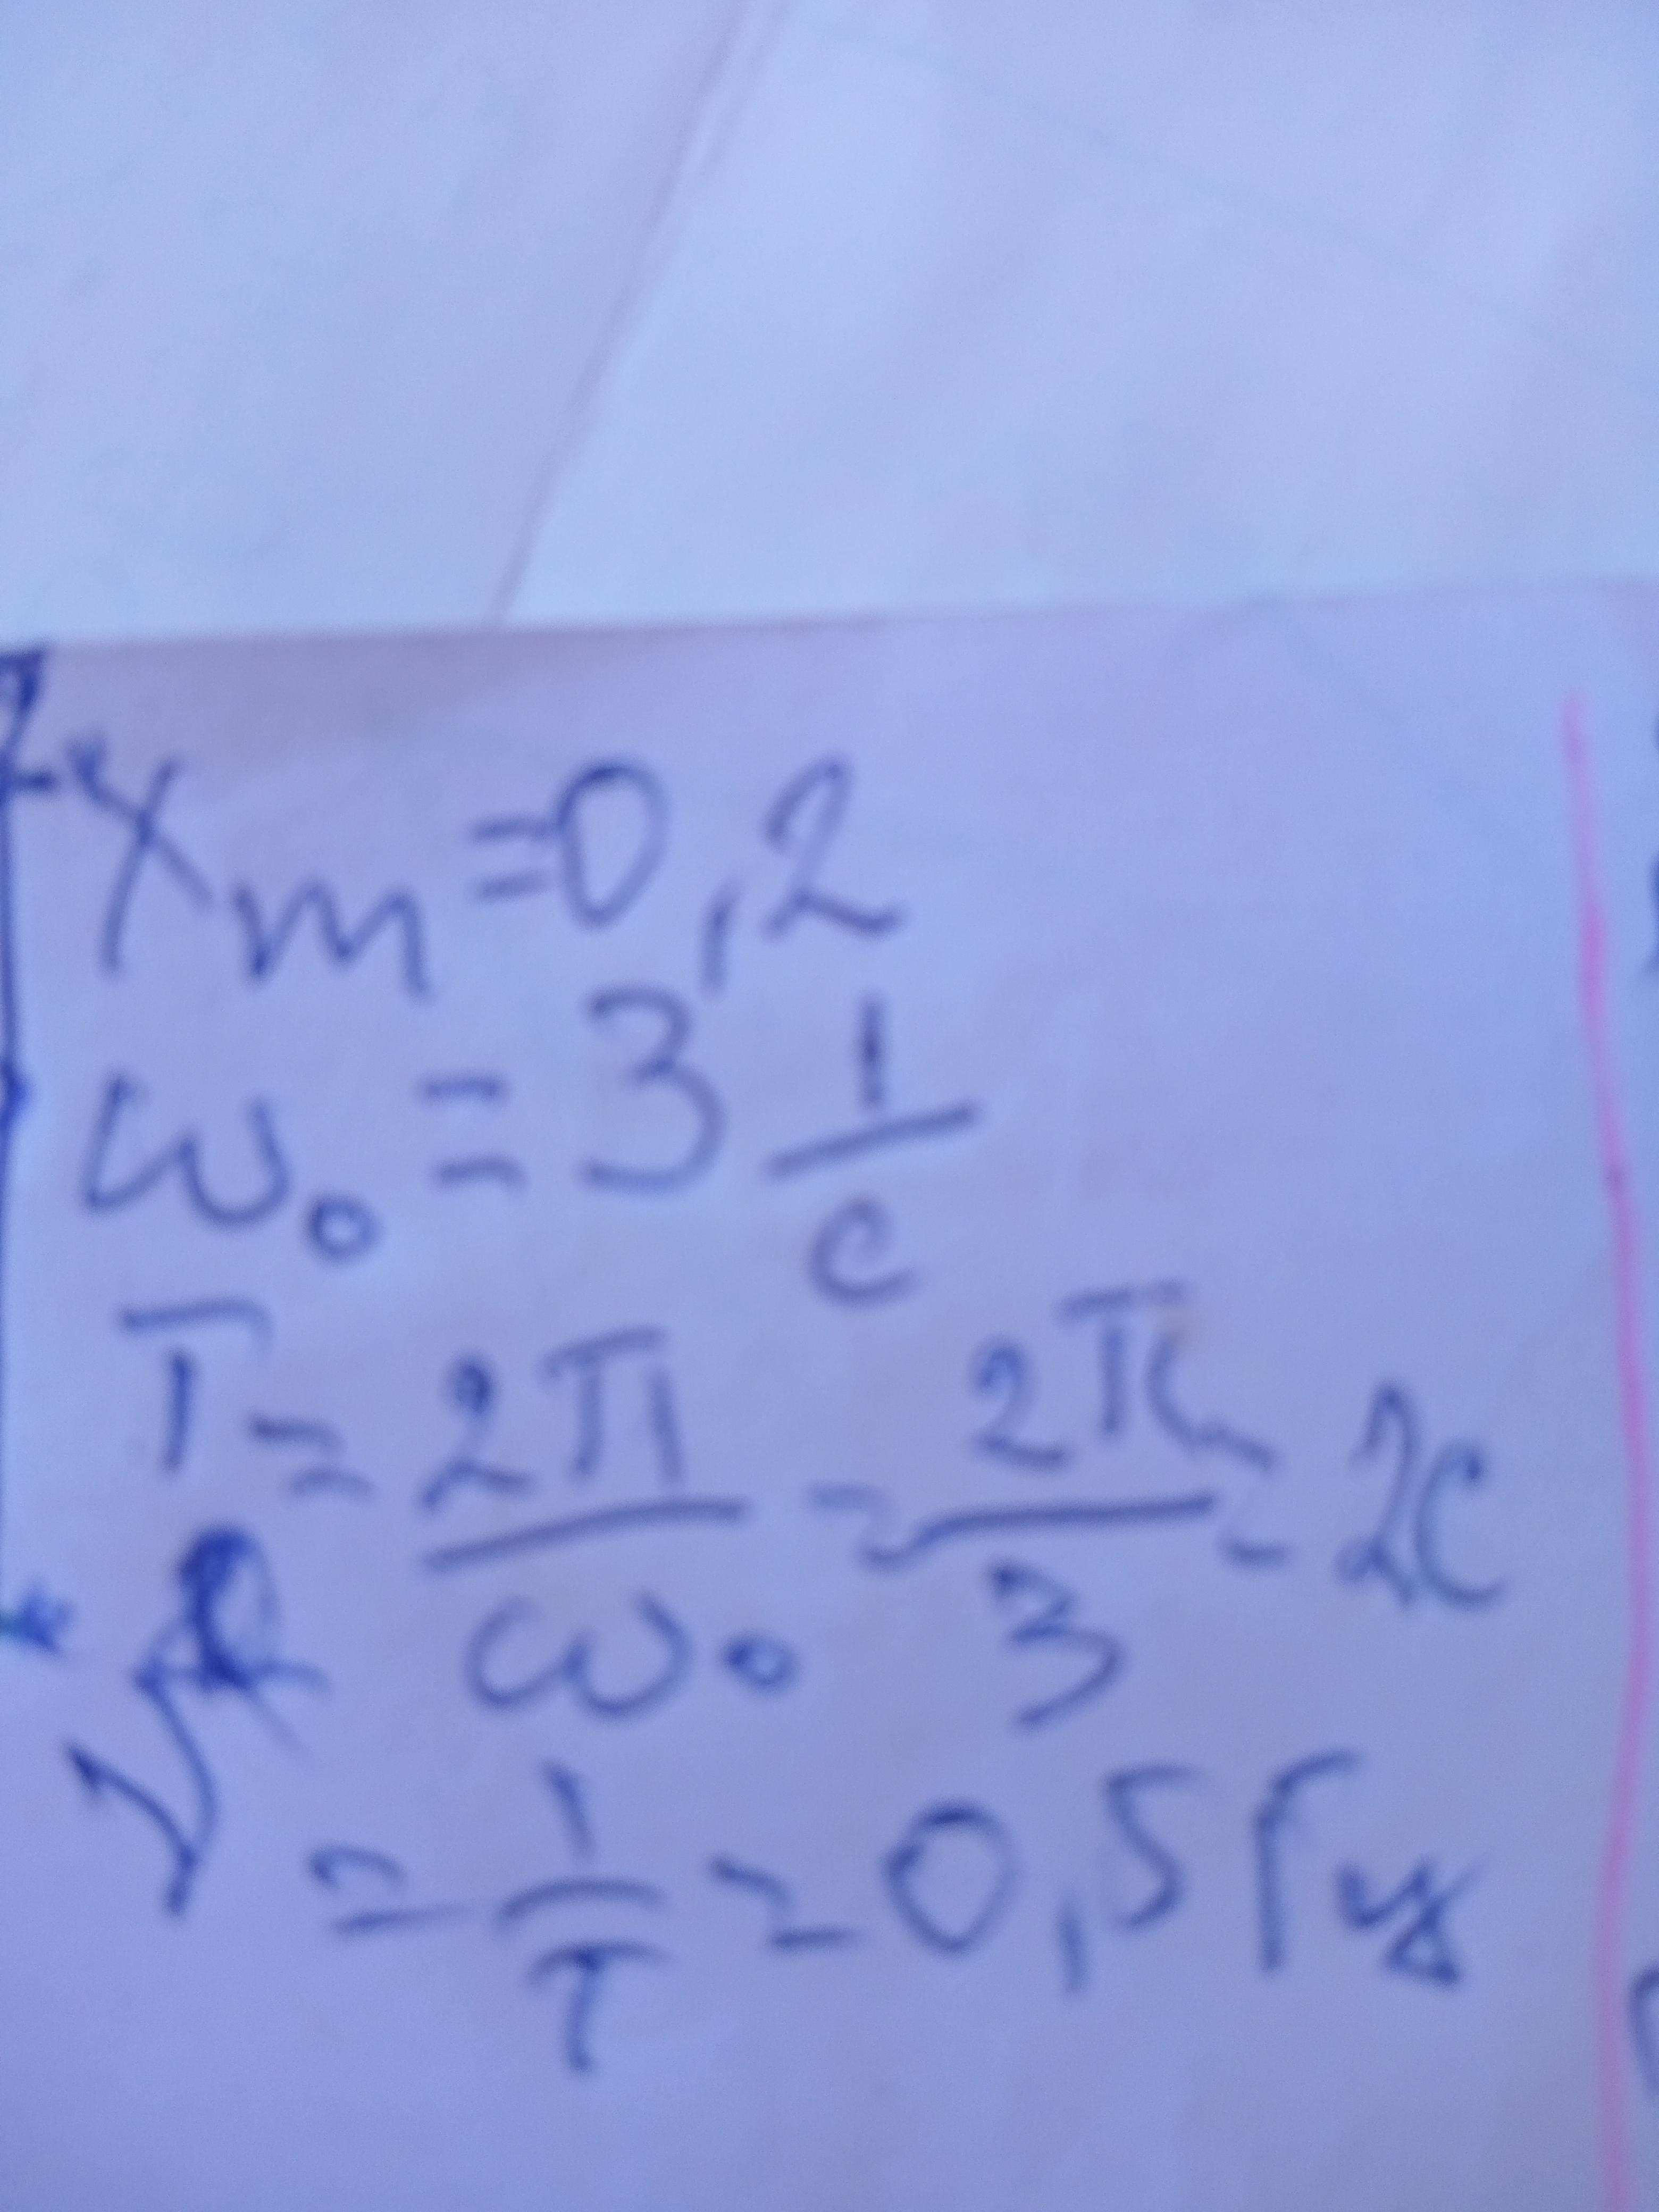 Xm=0,2
ω₀ = 3 1/c
T = 2π/ω₀ = 2π/3 = 2c
ν = 1/T = 0,5 Гц